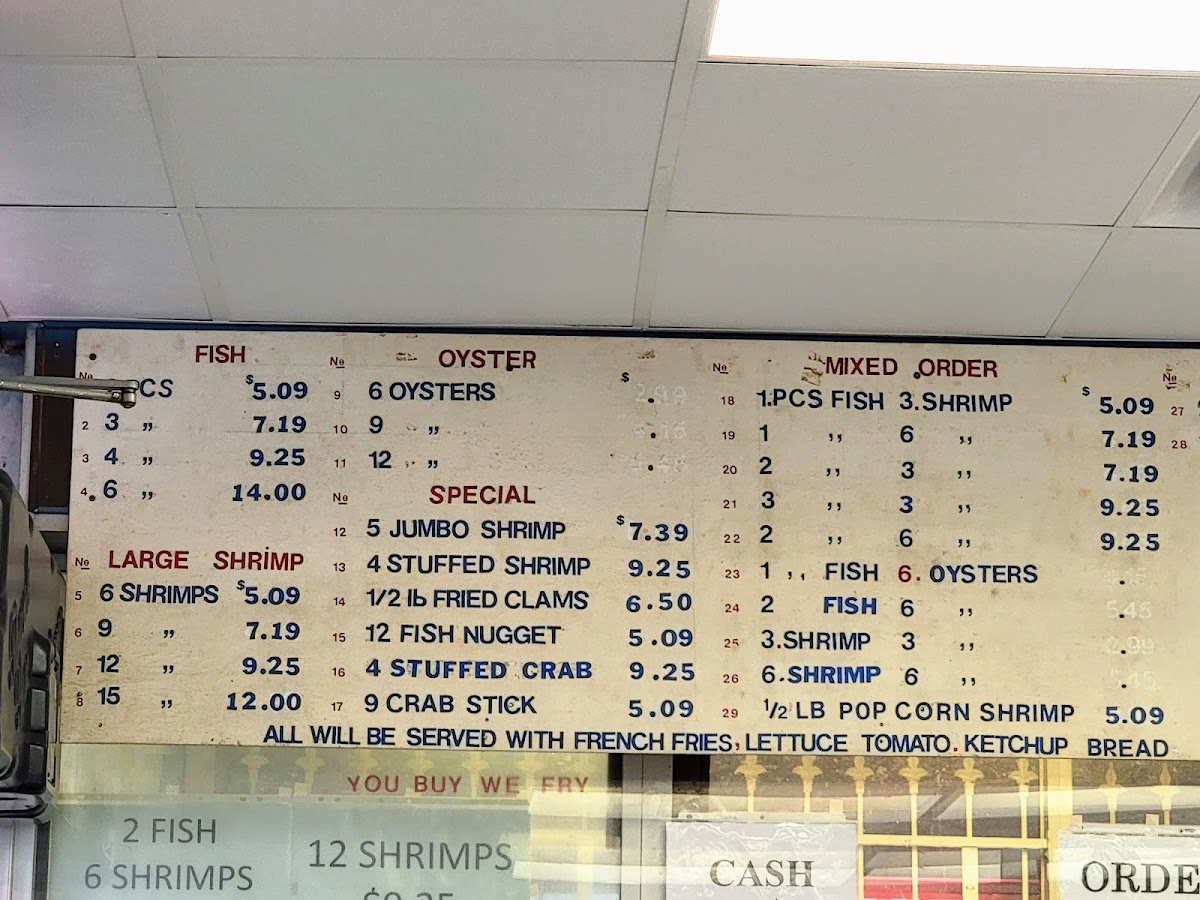 FISH
No
CS $5.09
2 3 " 7.19
3 4 " 9.25
4. 6 " 14.00
No LARGE SHRIMP
5 6 SHRIMPS $5.09
6 9 " 7.19
7 12 " 9.25
8 15 " 12.00
No OYSTER $
9 6 OYSTERS
10 9 "
11 12 "
No SPECIAL
12 5 JUMBO SHRIMP $7.39
13 4 STUFFED SHRIMP 9.25
14 1/2 lb FRIED CLAMS 6.50
15 12 FISH NUGGET 5.09
16 4 STUFFED CRAB 9.25
17 9 CRAB STICK 5.09
No MIXED ORDER
18 1.PCS FISH 3.SHRIMP $5.09
19 1 " 6 " 7.19
20 2 " 3 " 7.19
21 3 " 3 " 9.25
22 2 " 6 " 9.25
23 1 " FISH 6. OYSTERS
24 2 FISH 6 " 5.45
25 3.SHRIMP 3 " 2.99
26 6.SHRIMP 6 "
29 1/2 LB POP CORN SHRIMP 5.09
No
27
28
ALL WILL BE SERVED WITH FRENCH FRIES, LETTUCE TOMATO. KETCHUP BREAD
YOU BUY WE FRY
2 FISH
6 SHRIMPS
12 SHRIMPS
CASH
ORDE